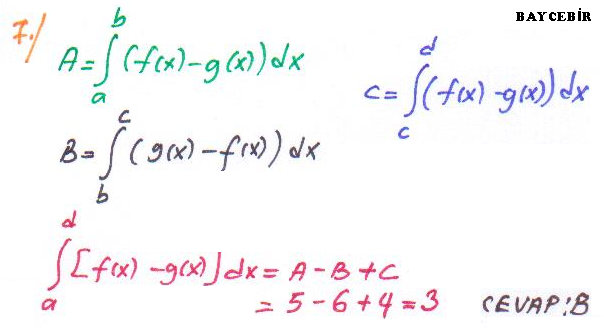 BAYCEBİR
7./
A = ∫_a^b (f(x) - g(x)) dx
C = ∫_c^d (f(x) - g(x)) dx
B = ∫_b^c (g(x) - f(x)) dx
∫_a^d [f(x) - g(x)] dx = A - B + C
= 5 - 6 + 4 = 3 CEVAP: B